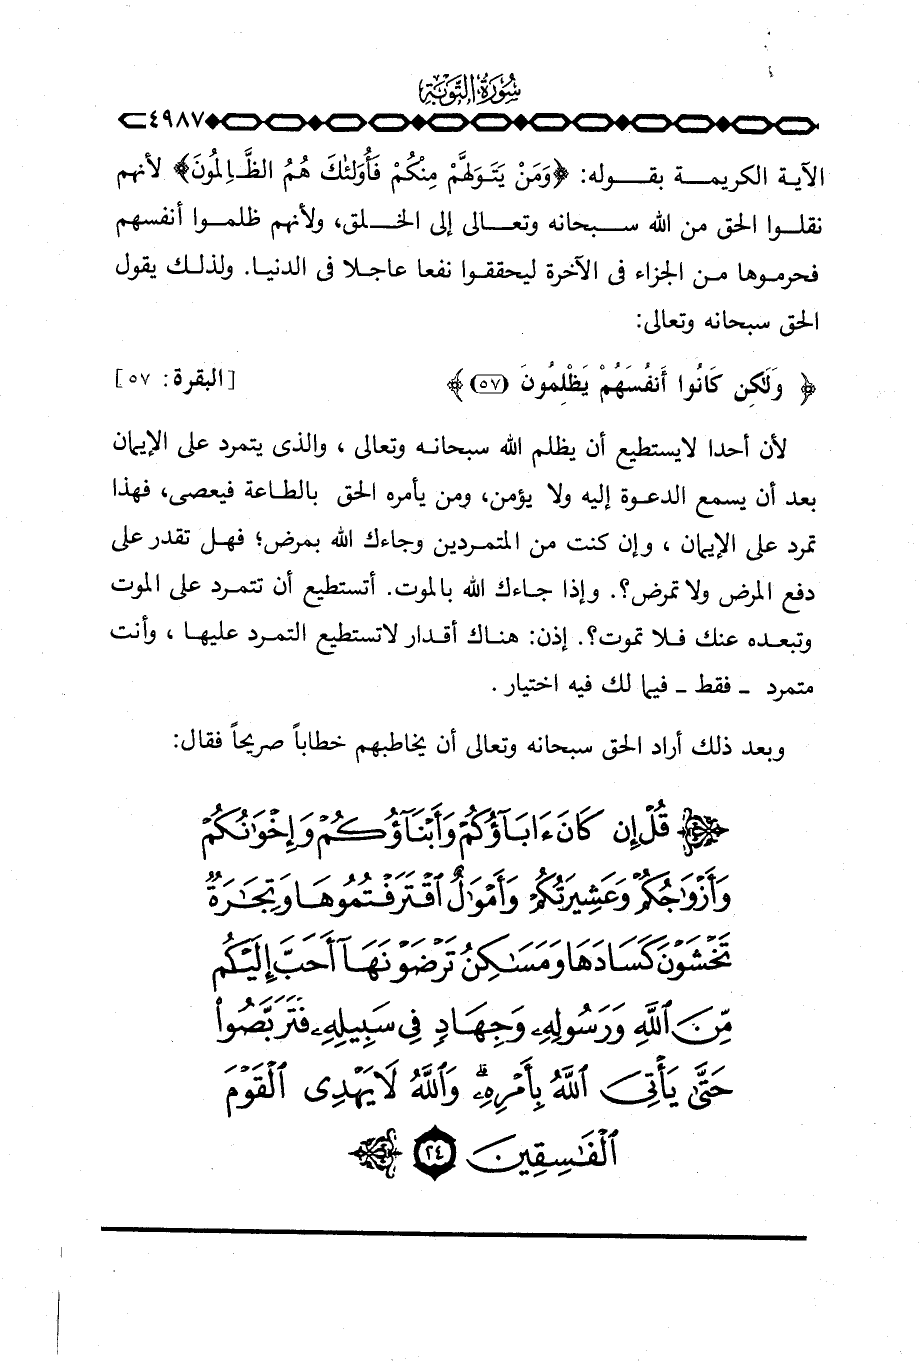 سُورَةُ التَّوْبَةِ
٤٩٨٧
الآية الكريمة بقوله: ﴿وَمَنْ يَتَوَلَّهُمْ مِنْكُمْ فَأُولَئِكَ هُمُ الظَّالِمُونَ﴾ لأنهم
نقلوا الحق من الله سبحانه وتعالى إلى الخلق، ولأنهم ظلموا أنفسهم
فحرموها من الجزاء فى الآخرة ليحققوا نفعا عاجلا فى الدنيا. ولذلك يقول
الحق سبحانه وتعالى:
﴿ وَلَٰكِن كَانُوا أَنفُسَهُمْ يَظْلِمُونَ (٥٧) ﴾ [البقرة: ٥٧]
لأن أحدا لايستطيع أن يظلم الله سبحانه وتعالى ، والذى يتمرد على الإيمان
بعد أن يسمع الدعوة إليه ولا يؤمن، ومن يأمره الحق بالطاعة فيعصى، فهذا
تمرد على الإيمان ، وإن كنت من المتمردين وجاءك الله بمرض؛ فهل تقدر على
دفع المرض ولا تمرض؟. وإذا جاءك الله بالموت. أتستطيع أن تتمرد على الموت
وتبعده عنك فلا تموت؟. إذن: هناك أقدار لاتستطيع التمرد عليها ، وأنت
متمرد ـ فقط ـ فيما لك فيه اختيار .
وبعد ذلك أراد الحق سبحانه وتعالى أن يخاطبهم خطاباً صريحاً فقال:
﴿ قُلْ إِن كَانَ ءَابَآؤُكُمْ وَأَبْنَآؤُكُمْ وَإِخْوَٰنُكُمْ
وَأَزْوَٰجُكُمْ وَعَشِيرَتُكُمْ وَأَمْوَٰلٌ ٱقْتَرَفْتُمُوهَا وَتِجَٰرَةٌ
تَخْشَوْنَ كَسَادَهَا وَمَسَٰكِنُ تَرْضَوْنَهَآ أَحَبَّ إِلَيْكُم
مِّنَ ٱللَّهِ وَرَسُولِهِۦ وَجِهَادٍ فِي سَبِيلِهِۦ فَتَرَبَّصُوا۟
حَتَّىٰ يَأْتِيَ ٱللَّهُ بِأَمْرِهِۦ ۗ وَٱللَّهُ لَا يَهْدِى ٱلْقَوْمَ
ٱلْفَٰسِقِينَ ٢٤ ﴾